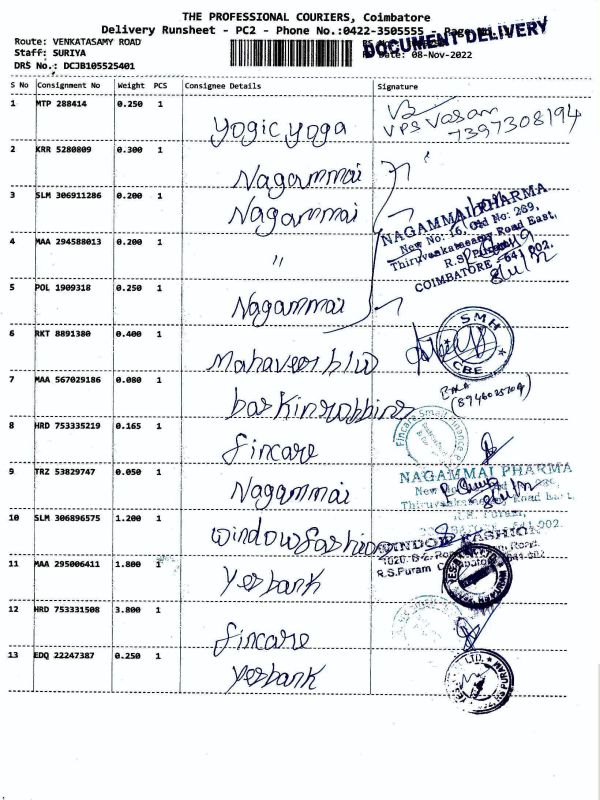 THE PROFESSIONAL COURIERS, Coimbatore
Delivery Runsheet - PC2 - Phone No.:0422-3505555
DOCUMENT DELIVERY
Route: VENKATASAMY ROAD
Staff: SURIYA
Date: 08-Nov-2022
DRS No.: DCJB105525401
S No Consignment No Weight PCS Consignee Details Signature
1 MTP 288414 0.250 1 Yogic yoga
VPS Vasan
7397308194
2 KRR 5280809 0.300 1 Nagammai
3 SLM 306911286 0.200 1 Nagammai
NAGAMMAI PHARMA
New No: 16, Old No: 289,
Thiruvenkatasamy Road East,
R.S. Puram,
COIMBATORE - 641 002.
4 MAA 294588013 0.200 1 "
5 POL 1909318 0.250 1 Nagammai
6 RKT 8891380 0.400 1 Mahaveer bld
SMH
CBE
7 MAA 567029186 0.080 1 baskinrobbins
8 HRD 753335219 0.165 1 fincare
Fincare Small Finance
9 TRZ 53829747 0.050 1 Nagammai
NAGAMMAI PHARMA
Road East,
641 002.
10 SLM 306896575 1.200 1 windowfashions
WINDOW FASHION
R.S.Puram
11 MAA 295006411 1.800 1 Yesbank
12 HRD 753331508 3.800 1 fincare
13 EDQ 22247387 0.250 1 Yesbank